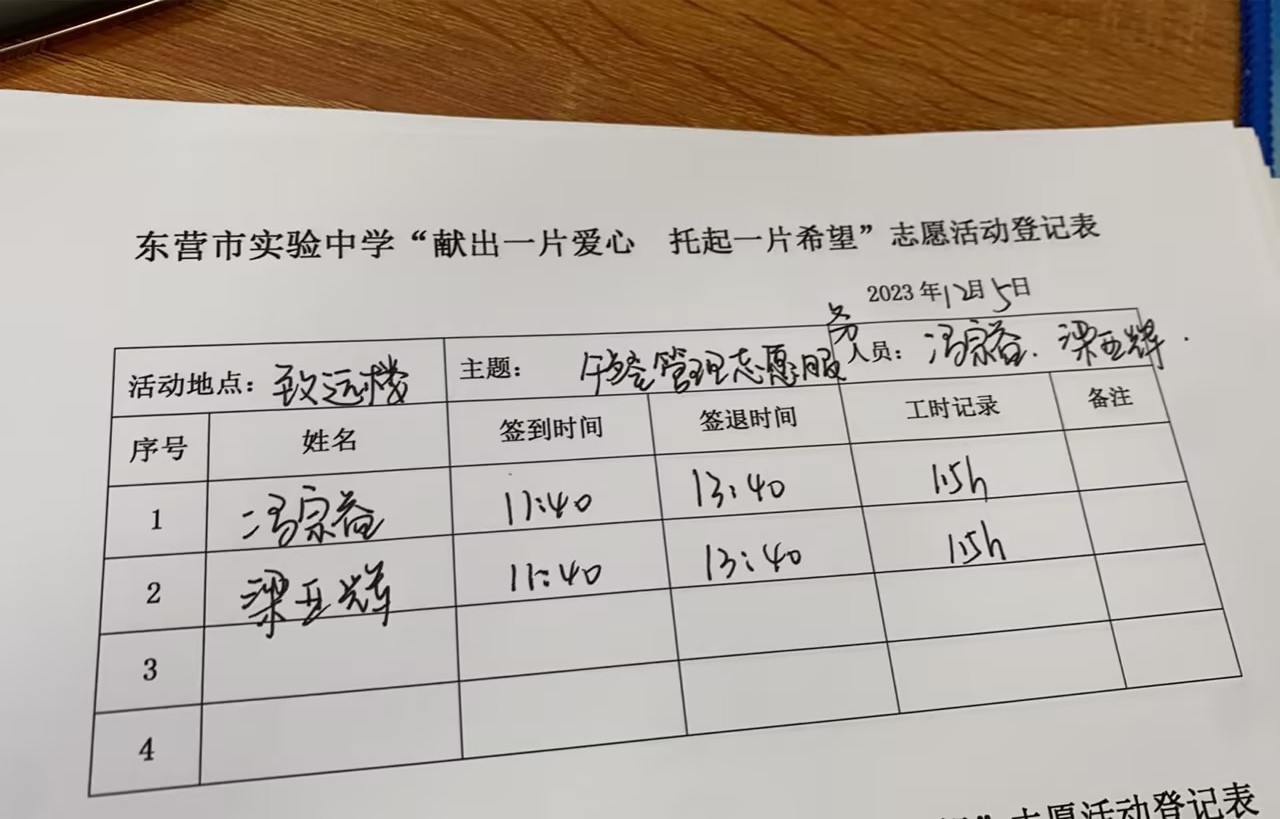 东营市实验中学“献出一片爱心 托起一片希望”志愿活动登记表
2023年12月5日
活动地点：致远楼 主题： 午餐管理志愿服务 人员：冯宗益、梁亚辉.
序号 姓名 签到时间 签退时间 工时记录 备注
1 冯宗益 11:40 13:40 1.5h
2 梁亚辉 11:40 13:40 1.5h
3
4
”志愿活动登记表